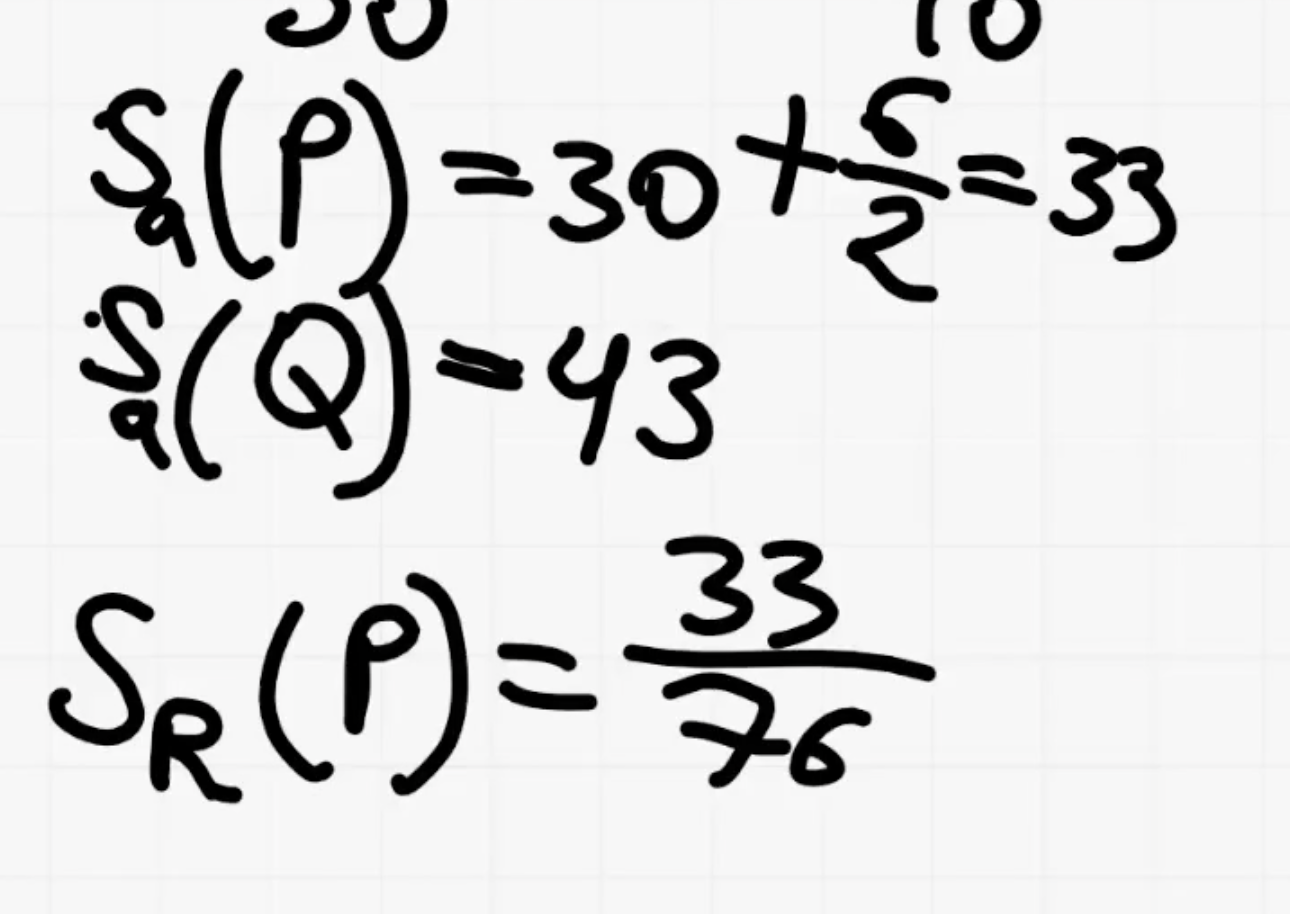 30 10
S_a(P) = 30 + 6/2 = 33
S_a(Q) = 43
S_R(P) = 33/76